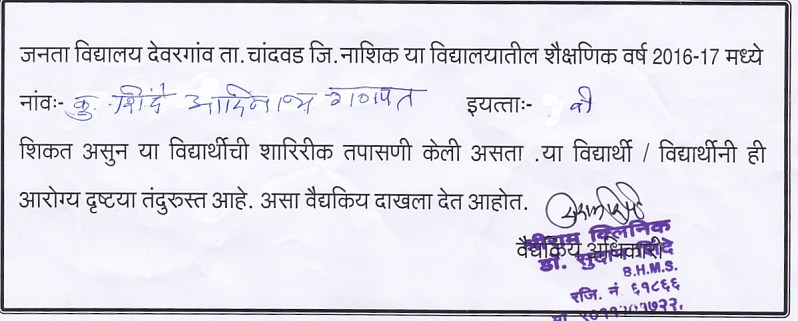 जनता विद्यालय देवरगांव ता.चांदवड जि.नाशिक या विद्यालयातील शैक्षणिक वर्ष 2016-17 मध्ये
नांवः- कु. शिंदे आदिनाथ गणपत इयत्ताः- वी
शिकत असुन या विद्यार्थीची शारिरीक तपासणी केली असता .या विद्यार्थी / विद्यार्थीनी ही
आरोग्य दृष्टया तंदुरुस्त आहे. असा वैद्यकिय दाखला देत आहोत.
श्रीराम क्लिनिक
वैद्यकिय अधिकारी
डॉ. शिंदे
B.H.M.S.
रजि. नं ६१८६६